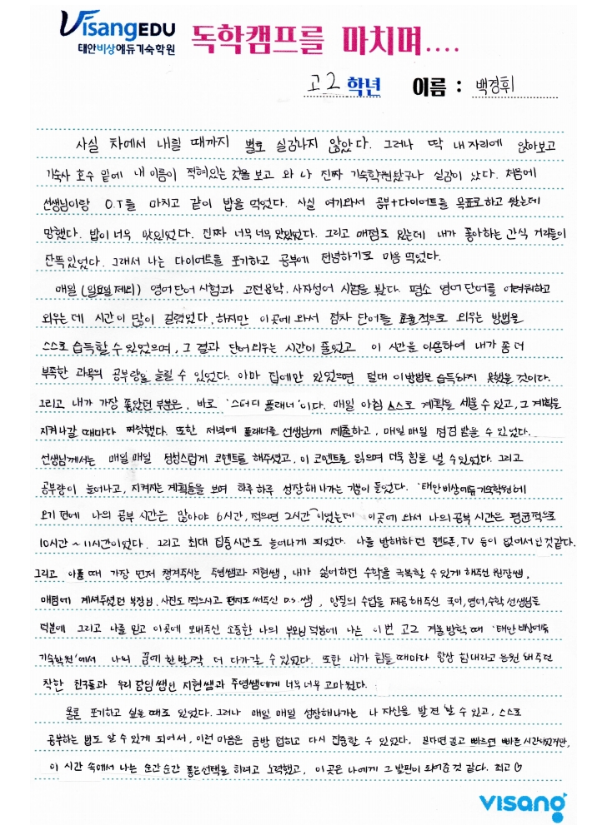 VisangEDU
태안비상에듀기숙학원
독학캠프를 마치며....
고2 학년 이름 : 백경휘
사실 차에서 내릴 때까지 별로 실감나지 않았다. 그러나 딱 내 자리에 앉아보고
기숙사 호수 밑에 내 이름이 적혀있는 것을 보고 와 나 진짜 기숙학원왔구나 실감이 났다. 처음에
선생님이랑 O.T를 마치고 같이 밥을 먹었다. 사실 여기와서 공부+다이어트를 목표로하고 왔는데
망했다. 밥이 너무 맛있었다. 진짜 너무 너무 맛있었다. 그리고 매점도 있는데 내가 좋아하는 간식 거리들이
잔뜩 있었다. 그래서 나는 다이어트를 포기하고 공부에 전념하기로 마음 먹었다.
매일 (일요일 제외) 영어단어 시험과 고전용학, 사자성어 시험을 봤다. 평소 영어 단어를 어려워하고
외우는 데 시간이 많이 걸렸었다. 하지만 이곳에 와서 점차 단어를 효율적으로 외우는 방법을
스스로 습득할 수 있었으며, 그 결과 단어 외우는 시간이 줄었고 이 시간을 이용하여 내가 좀 더
부족한 과목의 공부량을 늘릴 수 있었다. 아마 집에만 있었으면 절대 이 방법을 습득하지 못했을 것이다.
그리고 내가 가장 좋았던 부분은, 바로 '스터디 플래너'이다. 매일 아침 스스로 계획을 세울 수 있고, 그 계획을
지켜나갈 때마다 뿌듯했다. 또한 저녁에 플래너를 선생님께 제출하고, 매일 매일 점검 받을 수 있었다.
선생님께서는 매일 매일 정성스럽게 코멘트를 해주셨고, 이 코멘트를 읽으며 더욱 힘을 낼 수 있었다. 그리고
공부량이 늘어나고, 지켜지는 계획들을 보며 하루 하루 성장해 나가는 기분이 들었다. '태안비상에듀기숙학원'에
오기 전에 나의 공부 시간은 많아야 6시간, 적으면 2시간 이었는데 이곳에 와서 나의 공부 시간은 평균적으로
10시간 ~ 11시간이었다. 그리고 최대 집중시간도 늘어나게 되었다. 나를 방해하던 핸드폰, TV 등이 없어서인것같다.
그리고 아플 때 가장 먼저 챙겨주시는 주영쌤과 지현쌤, 내가 싫어하던 수학을 극복할 수 있게 해주신 원장쌤,
매점에 계셔주셨던 부장님, 사진도 찍으시고 편지도 써주신 쌤, 양질의 수업을 제공해주신 국어, 영어, 수학 선생님들
덕분에 그리고 나를 믿고 이곳에 보내주신 소중한 나의 부모님 덕분에 나는 이번 고2 겨울방학 때 '태안 비상에듀
기숙학원'에서 나의 꿈에 한 발짝 더 다가갈 수 있었다. 또한 내가 힘들 때마다 항상 힘내라고 응원 해주던
착한 친구들과 우리 담임쌤인 지현쌤과 주영쌤에게 너무 너무 고마웠다.
물론 포기하고 싶을 때도 있었다. 그러나 매일 매일 성장해나가는 나 자신을 발견 할 수 있고, 스스로
공부하는 법도 알 수 있게 되어서, 이런 마음은 금방 접고 다시 집중할 수 있었다. 길다면 길고 빠르면 빠른 시간이었지만,
이 시간 속에서 나는 순간 순간 좋은 선택을 하려고 노력했고, 이곳은 나에게 그 발판이 되어준 것 같다. 최고♡
visang